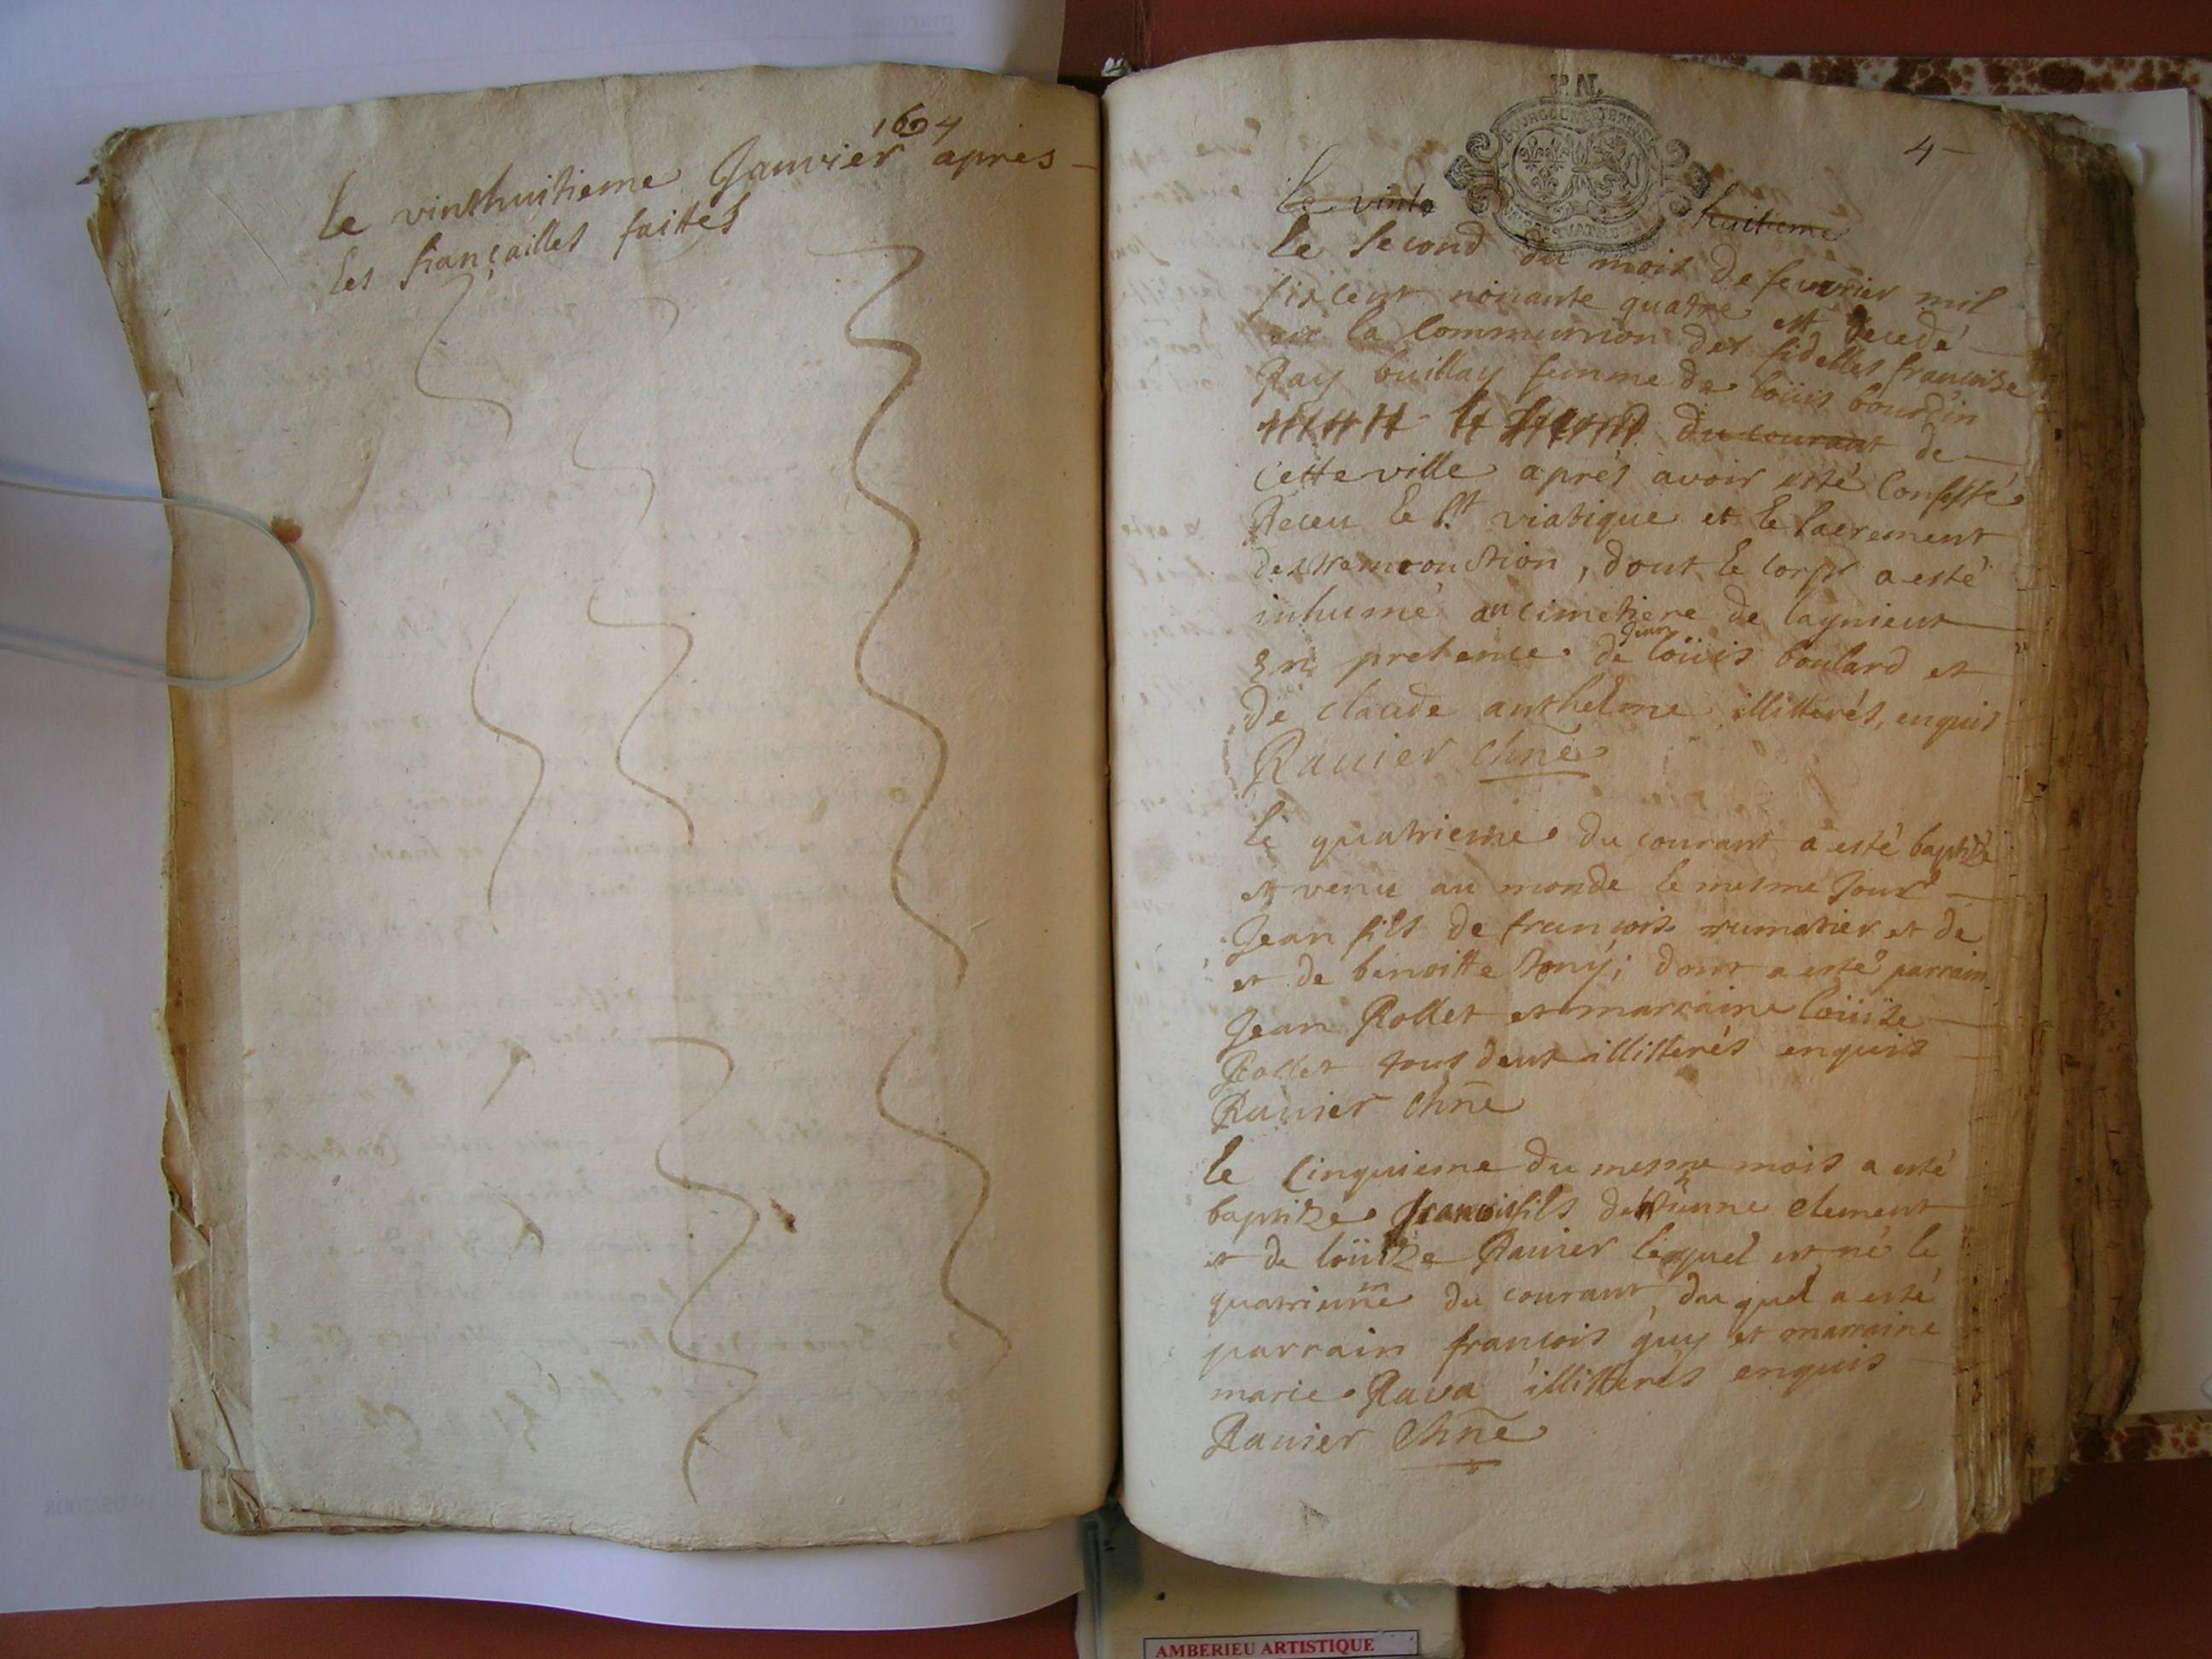 1694
le vinthuitieme Janvier apres
les fiançailles faittes
P. N.
4
le vinte huitieme
le second du mois de feuvrier mil
six cent nonante quatre est decedé
en la Communion des fidelles francoise
Ray buillay femme de loüis bourdin
du courant de
cette ville aprés avoir esté Confessée
Receu le st viatique et le sacrement
dextremeonction, dont le corps a esté
inhumé au cimetiere de lagnieut
En presence de Jean loüis boulard et
de claude anthelme illitterés, enquis
Ravier Chne
le quatrieme du courant a esté baptizé
et venu au monde le mesme Jour
Jean fils de francois rumatier et de
et de benoitte tony; dont a esté parrain
Jean Rollet et marraine loüize
Rollet tous deux illitterés enquis
Ravier Chne
le cinquieme du mesme mois a esté
baptize francois fils de estienne clement
et de loüize Ravier lequel est né le
quatrieme du courant, du quel a esté
parrain francois guy et marraine
marie Rava illitterés enquis
Ravier Chne
AMBERIEU ARTISTIQUE